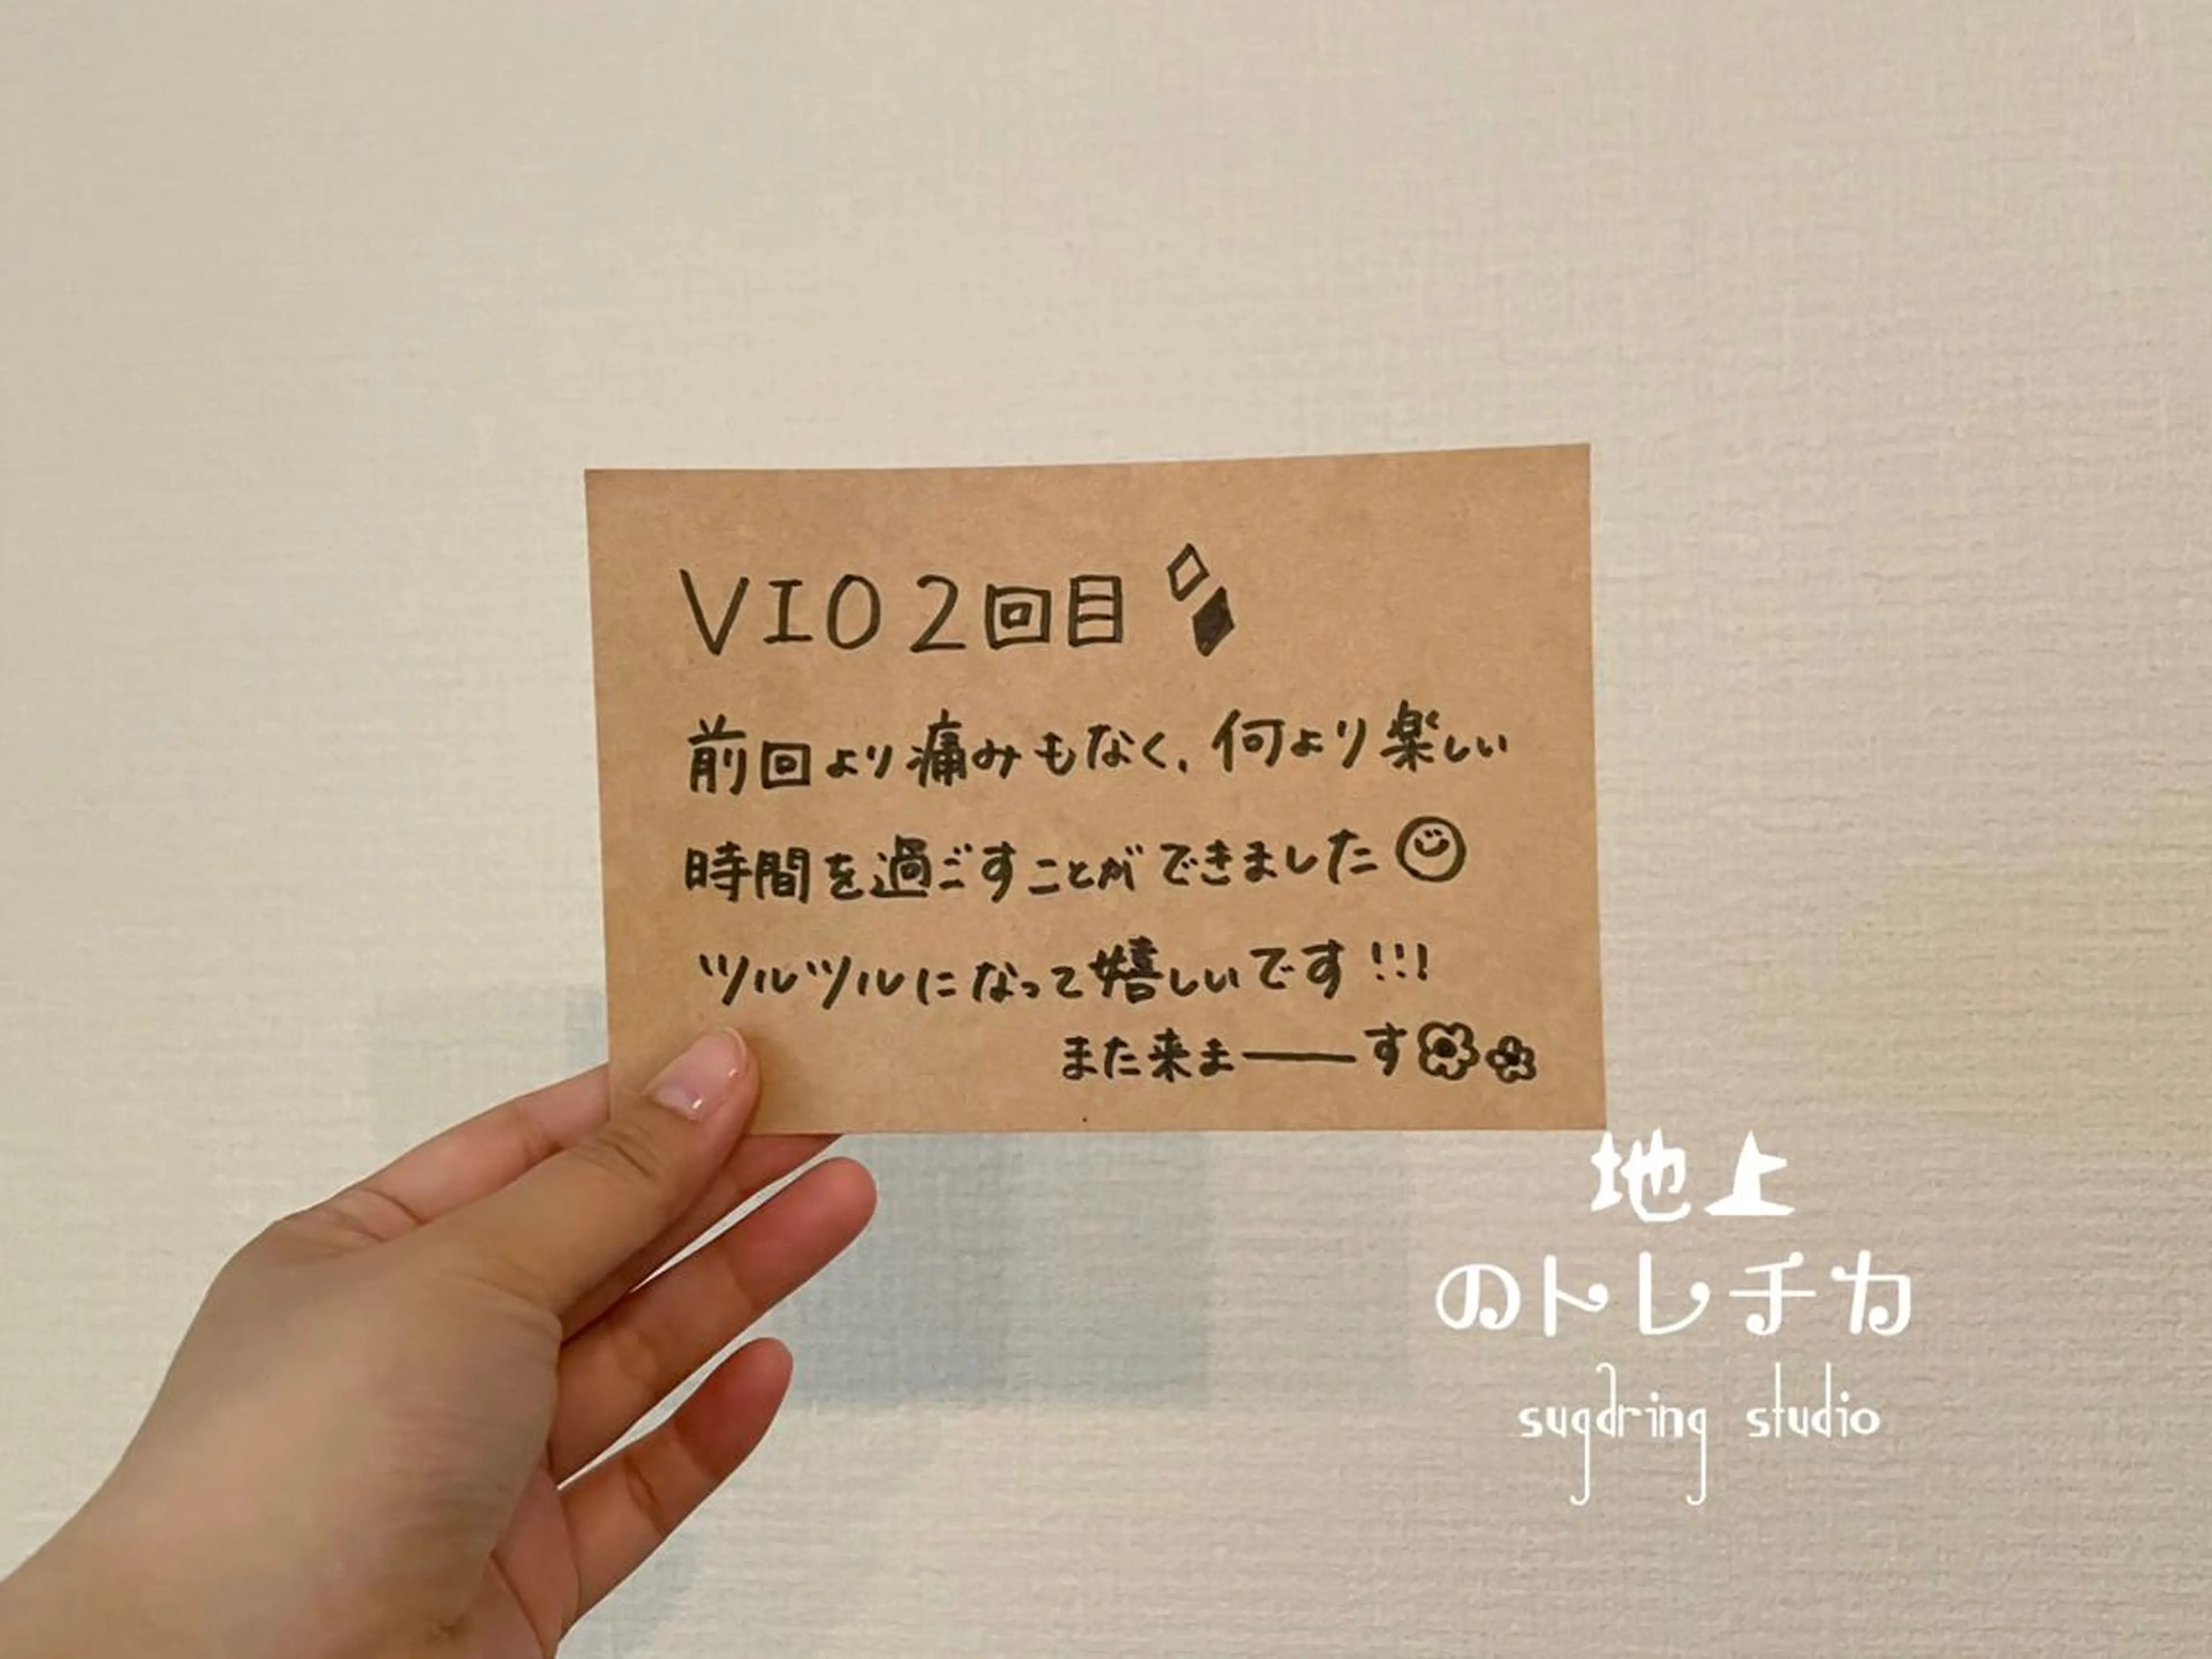 VIO 2回目
前回より痛みもなく、何より楽しい
時間を過ごすことができました
ツルツルになって嬉しいです!!!
また来ま――す
地上
のトレチカ
sugaring studio